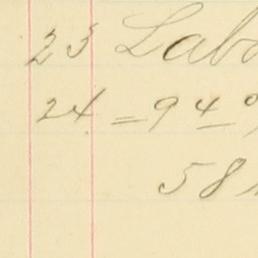 23 Labo
24 = 94
58